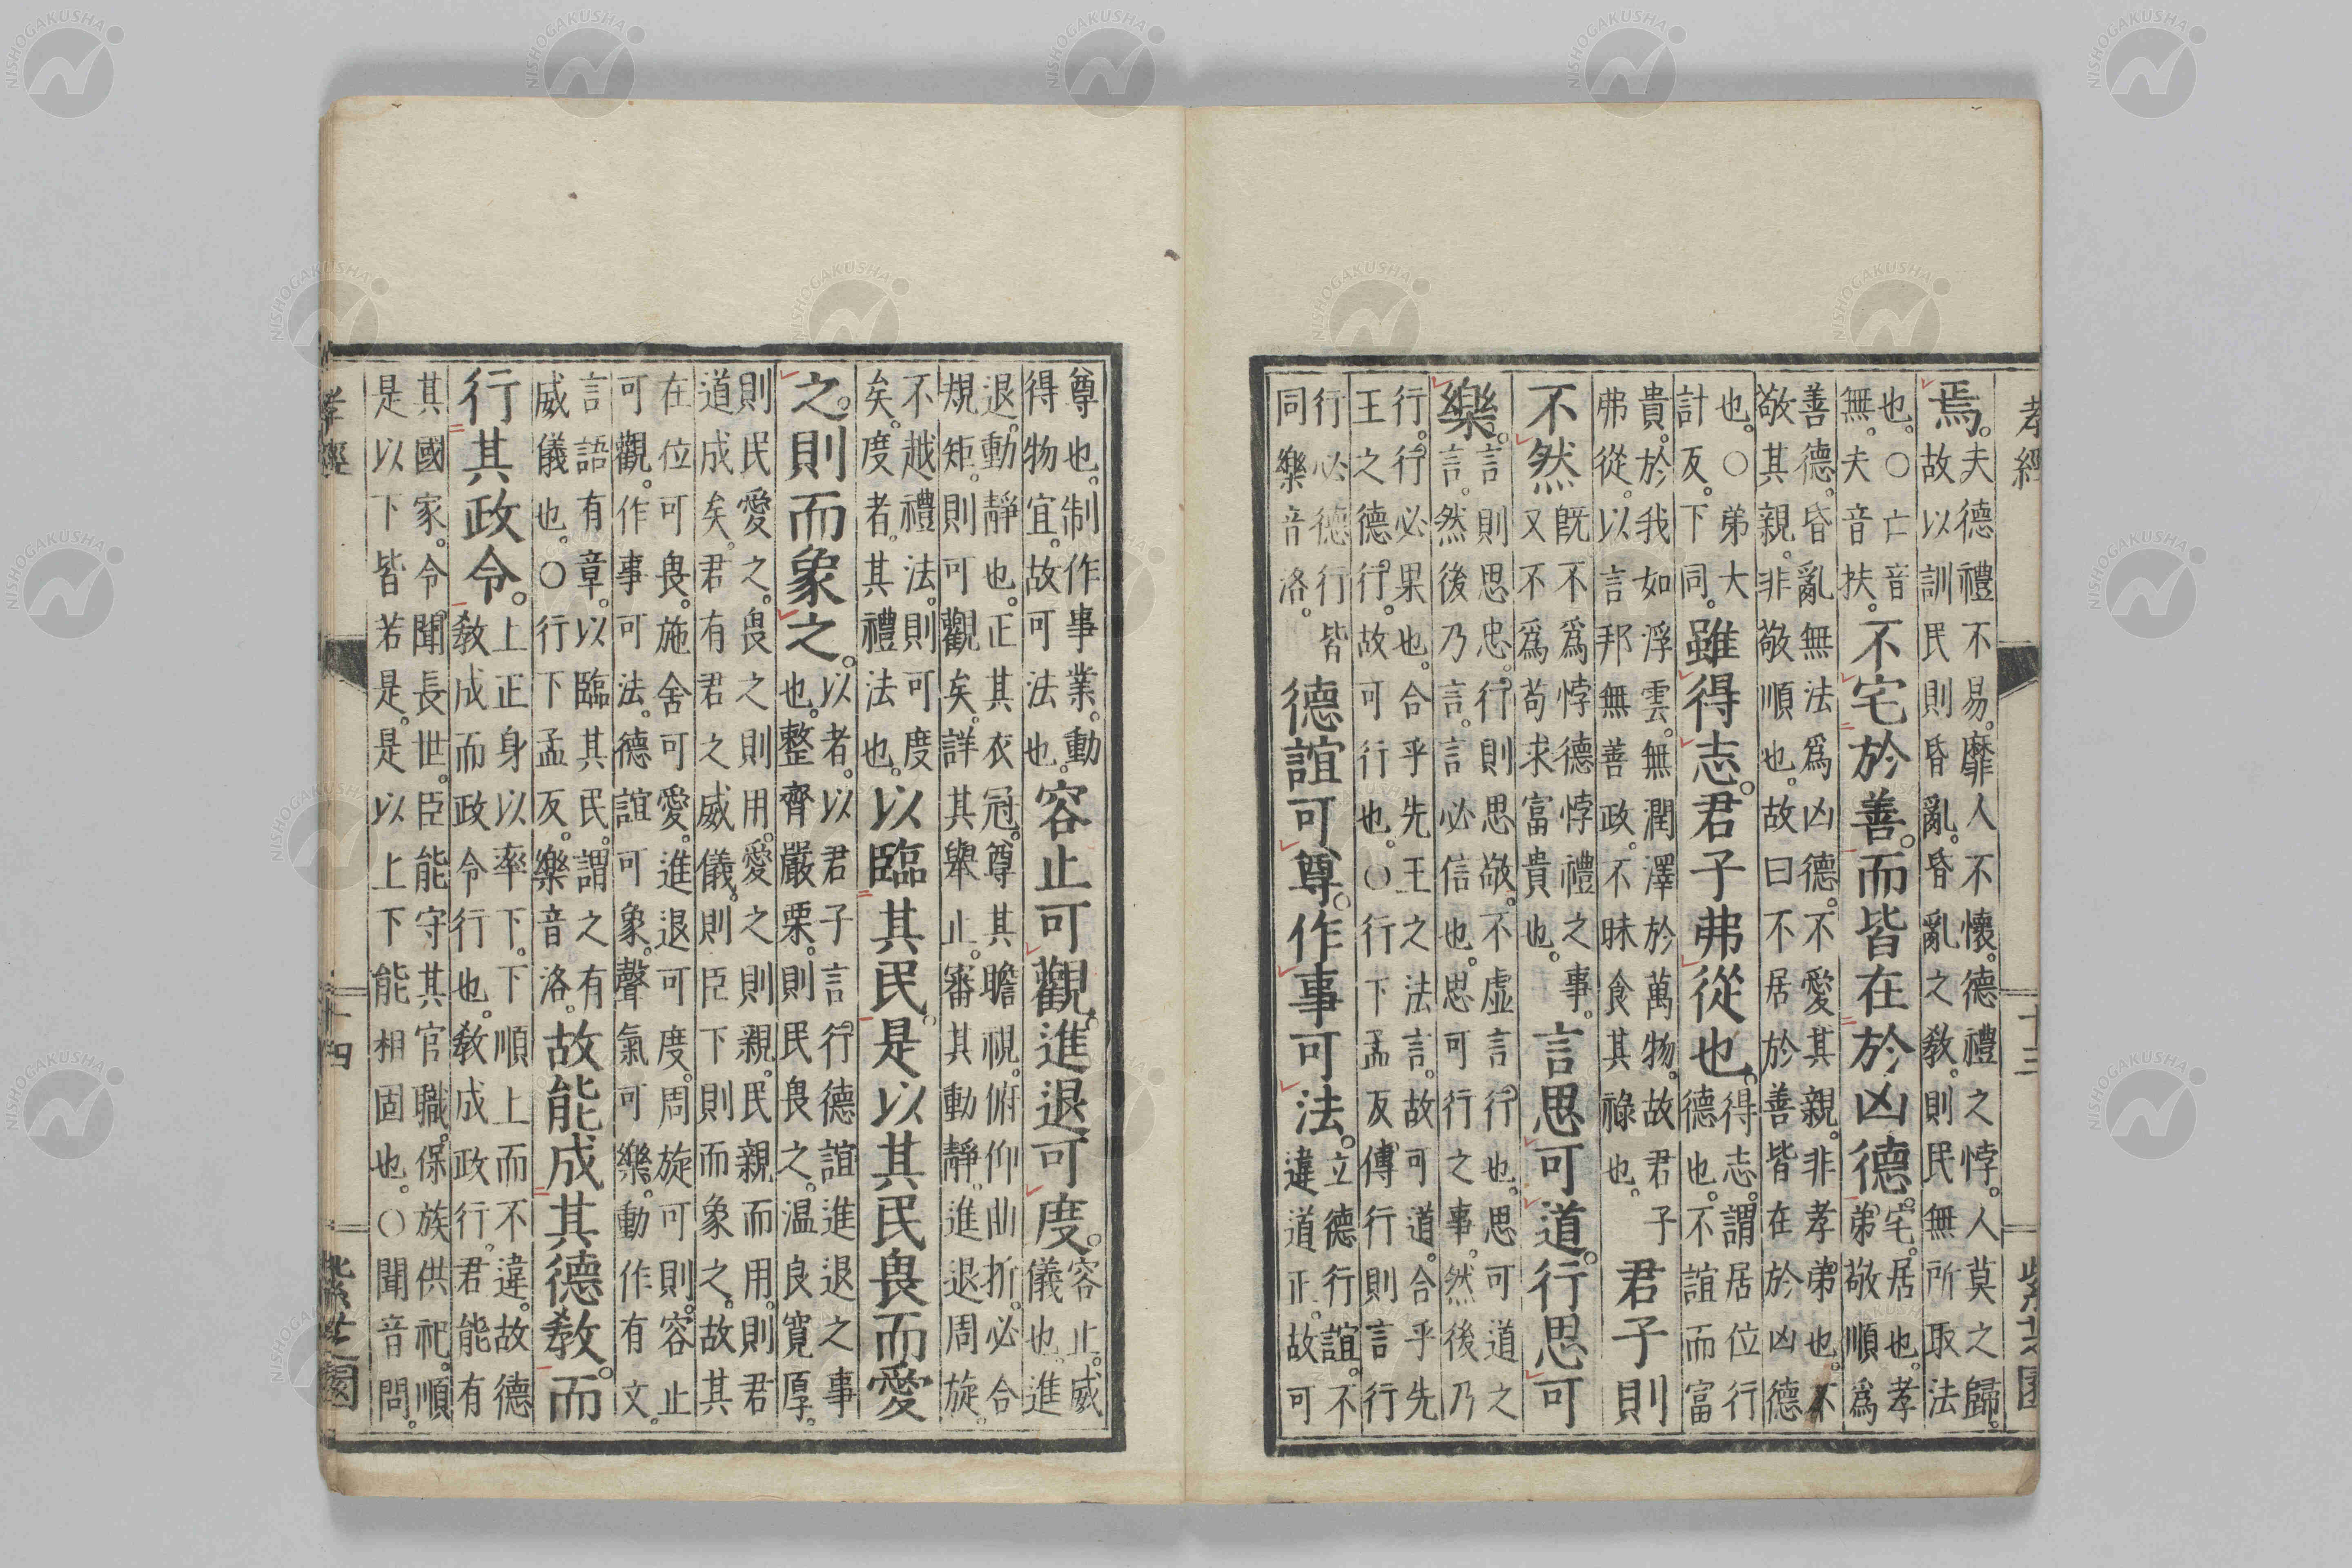 孝經
十三
紫芝園
焉。夫德禮不易。靡人不懷。德禮之悖。人莫之歸。
故以訓民則昏亂。昏亂之教。則民無所取法
也。○亡音
無。夫音扶。
不宅於善。而皆在於凶德。宅。居也。孝
弟敬順爲
善德。昏亂無法爲凶德。不愛其親。非孝弟也。不
敬其親。非敬順也。故曰不居於善皆在於凶德
也。○弟大
計反。下同。
雖得志。君子弗從也。得志。謂居位行
德也。不誼而富
貴。於我如浮雲。無潤澤於萬物。故君子
弗從。以言邦無善政。不昧食其祿也。
君子則
不然旣不爲悖德悖禮之事。
又不爲苟求富貴也。
言思可道。行思可
樂。言則思忠。行則思敬。不虛言行也。思可道之
言。然後乃言。言必信也。思可行之事。然後乃
行。行必果也。合乎先王之法言。故可道。合乎先
王之德行。故可行也。○行下孟反。傳行則言行
行必德行行皆
同樂音洛。
德誼可尊。作事可法。立德行誼。不
違道正。故可
尊也。制作事業。動
得物宜。故可法也。
容止可觀。進退可度。容止。威
儀也。進
退。動靜也。正其衣冠。尊其瞻視。俯仰曲折。必合
規矩。則可觀矣。詳其舉止。審其動靜。進退周旋。
不越禮法。則可度
矣。度者。其禮法也。
以臨其民。是以其民畏而愛
之。則而象之。以者。以君子言行。德誼進退之事
也。整齊嚴栗。則民畏之。温良寬厚。
則民愛之。畏之則用。愛之則親。民親而用。則君
道成矣。君有君之威儀。則臣下則而象之。故其
在位可畏。施舍可愛。進退可度。周旋可則。容止
可觀。作事可法。德誼可象。聲氣可樂。動作有文。
言語有章。以臨其民。謂之有
威儀也。○行下孟反。樂音洛。
故能成其德教。而
行其政令。上正身以率下。下順上而不違。故德
教成而政令行也。教成政行。君能有
其國家。令聞長世。臣能守其官職。保族供祀。順
是以下皆若是。是以上下能相固也。○聞音問。
孝經
十四
紫芝園